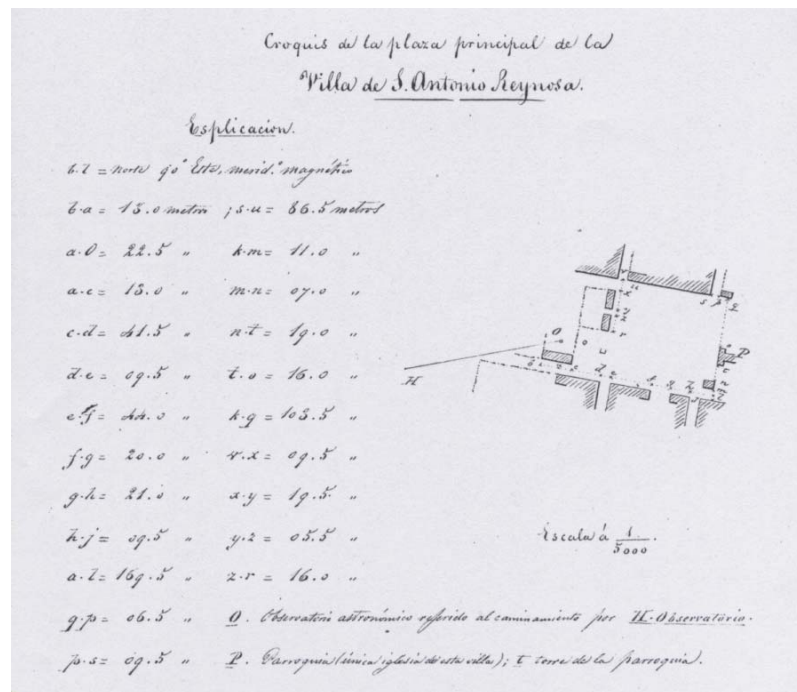 Croquis de la plaza principal de la
Villa de S. Antonio Reynosa.
Esplicacion.
= Norte 90° Este, merid.° magnético
b.a = 15.0 metros ; s.u = 86.5 metros
a.O = 22.5 " k.m = 11.0 "
a.c = 13.0 " m.n = 07.0 "
c.d = 41.5 " n.t = 19.0 "
d.e = 09.5 " t.o = 16.0 "
e.f = 44.0 " k.q = 103.5 "
f.g = 20.0 " v.x = 09.5 "
g.h = 21.0 " x.y = 19.5 "
h.j = 09.5 " y.z = 05.5 "
a.l = 169.5 " z.r = 16.0 "
q.p = 06.5 " O. Observatorio astronómico referido al caminamiento por H-Observatorio.
p.s = 09.5 " P. Parroquia (única iglesia de esta villa); t torre de la parroquia.
O
P
H
Escala á 1/5000